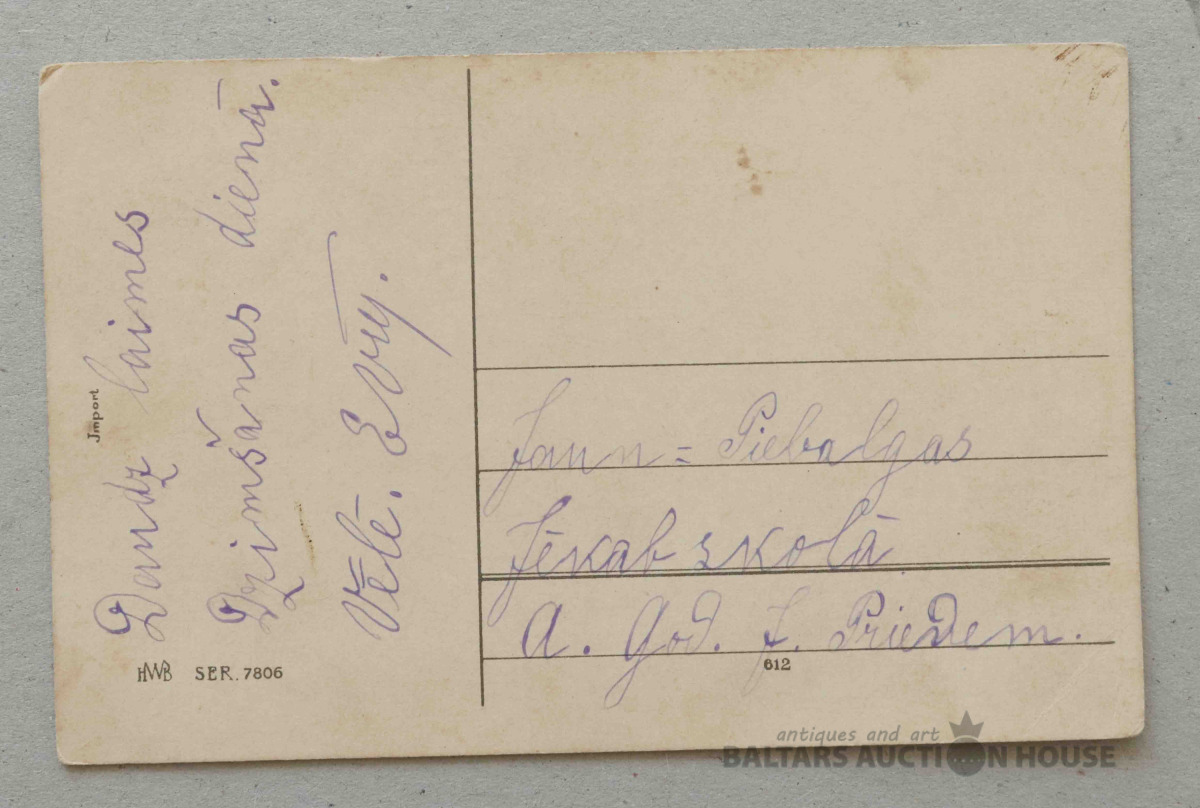 Daudz laimes
Dzimšanas dienā.
Vēlē.
Jaun = Piebalgas
Jēkab skolā
A. God. J. Priedem.
Jmport
HWB SER. 7806
612
antiques and art
BALTARS AUCTION HOUSE